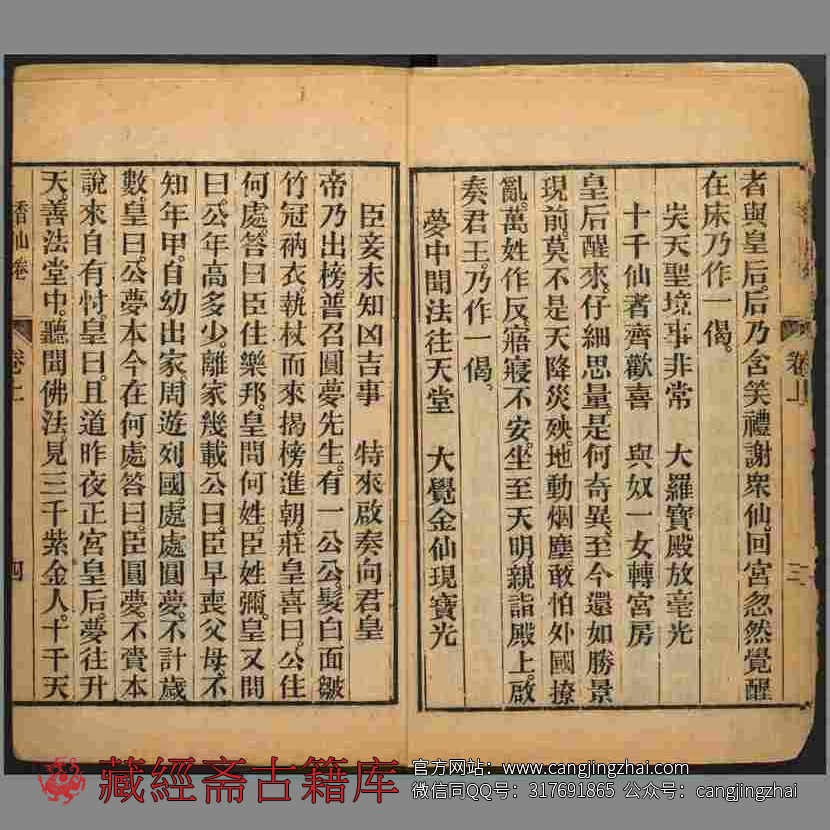 者與皇后。后乃含笑禮謝衆仙。回宮忽然覺醒
在床乃作一偈。
昊天聖境事非常　大羅寶殿放毫光
十千仙者齊歡喜　與奴一女轉宮房
皇后醒來。仔細思量。是何奇異。至今還如勝景
現前。莫不是天降災殃。地動烟塵。敢怕外國撩
亂。萬姓作反。寤寢不安。坐至天明。親詣殿上。啟
奏君王。乃作一偈。
夢中聞法往天堂　大覺金仙現寶光
卷上
三
臣妾未知凶吉事　特來啟奏向君皇
帝乃出榜。普召圓夢先生。有一公公。髮白面皺
竹冠衲衣。執杖而來。揭榜進朝。莊皇喜曰。公住
何處。答曰。臣住樂邦。皇問何姓。臣姓彌。皇又問
曰。公年高多少。離家幾載。公曰。臣早喪父母。不
知年甲。自幼出家。周遊列國。處處圓夢。不計歲
數。皇曰。公夢本今在何處。答曰。臣圓夢。不賷本
說來自有忖。皇曰。且道昨夜正宮皇后。夢往升
天。善法堂中。聽聞佛法。見三千紫金人。十千天
香山卷
卷上
四
藏經斋古籍库
官方网站：www.cangjingzhai.com
微信同QQ号：317691865 公众号：cangjingzhai